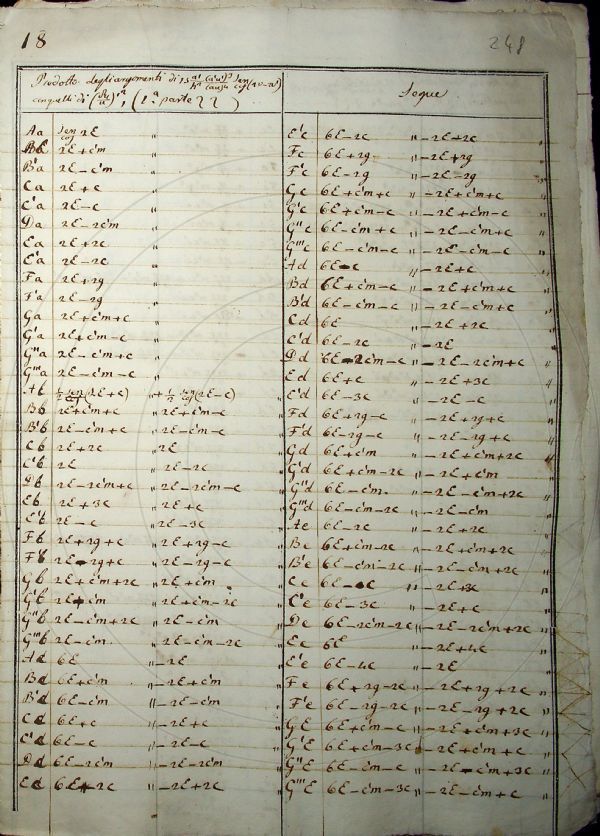 18
248
Prodotto degli argomenti di
cinquelli di (1.a parte 22)
Segue
Aa sen cos 2E "
Ba 2E+c'm "
B'a 2E–c'm "
Ca 2E+c "
C'a 2E–c "
Da 2E–2c'm "
Ea 2E+2c "
E'a 2E–2c "
Fa 2E+2g "
F'a 2E–2g "
Ga 2E+c'm+c "
G'a 2E+c'm–c "
G''a 2E–c'm+c "
G'''a 2E–c'm–c "
Ab ½ sen cos (2E+c) +½ sen cos (2E–c)
Bb 2E+c'm+c " 2E+c'm–c
B'b 2E–c'm+c " 2E–c'm–c
Cb 2E+2c " 2E
C'b 2E " 2E–2c
Db 2E–2c'm+c " 2E–2c'm–c
Eb 2E+3c " 2E+c
E'b 2E–c " 2E–3c
Fb 2E+2g+c " 2E+2g–c
F'b 2E–2g+c " 2E–2g–c
Gb 2E+c'm+2c " 2E+c'm
G'b 2E+c'm " 2E+c'm–2c
G''b 2E–c'm+2c " 2E–c'm
G'''b 2E–c'm " 2E–c'm–2c
Ad 6E " –2E
Bd 6E+c'm " –2E+c'm
B'd 6E–c'm " –2E–c'm
Cd 6E+c " –2E+c
C'd 6E–c " –2E–c
Dd 6E–2c'm " –2E–2c'm
Ed 6E+2c " –2E+2c
E'c 6E–2c " –2E+2c "
Fc 6E+2g " –2E+2g "
F'c 6E–2g " –2E–2g "
Gc 6E+c'm+c " –2E+c'm+c "
G'c 6E+c'm–c " –2E+c'm–c "
G''c 6E–c'm+c " –2E–c'm+c "
G'''c 6E–c'm–c " –2E–c'm–c "
Ad 6E–c " –2E+c "
Bd 6E+c'm–c " –2E+c'm+c "
B'd 6E–c'm–c " –2E–c'm+c "
Cd 6E " –2E+2c "
C'd 6E–2c " –2E "
Dd 6E–2c'm–c " –2E–2c'm+c "
Ed 6E+c " –2E+3c "
E'd 6E–3c " –2E–c "
Fd 6E+2g–c " –2E+2g+c "
F'd 6E–2g–c " –2E–2g+c "
Gd 6E+c'm " –2E+c'm+2c "
G'd 6E+c'm–2c " –2E+c'm "
G''d 6E–c'm " –2E–c'm+2c "
G'''d 6E–c'm–2c " –2E–c'm "
Ae 6E–2c " –2E+2c "
Be 6E+c'm–2c " –2E+c'm+2c "
B'e 6E–c'm–2c " –2E–c'm+2c "
Ce 6E–c " –2E+3c "
C'e 6E–3c " –2E+c "
De 6E–2c'm–2c " –2E–2c'm+2c "
Ee 6E " –2E+4c "
E'e 6E–4c " –2E "
Fe 6E+2g–2c " –2E+2g+2c "
F'e 6E–2g–2c " –2E–2g+2c "
GE 6E+c'm–c " –2E+c'm+3c "
G'E 6E+c'm–3c " –2E+c'm+c "
G''E 6E–c'm–c " –2E–c'm+3c "
G'''E 6E–c'm–3c " –2E–c'm+c "